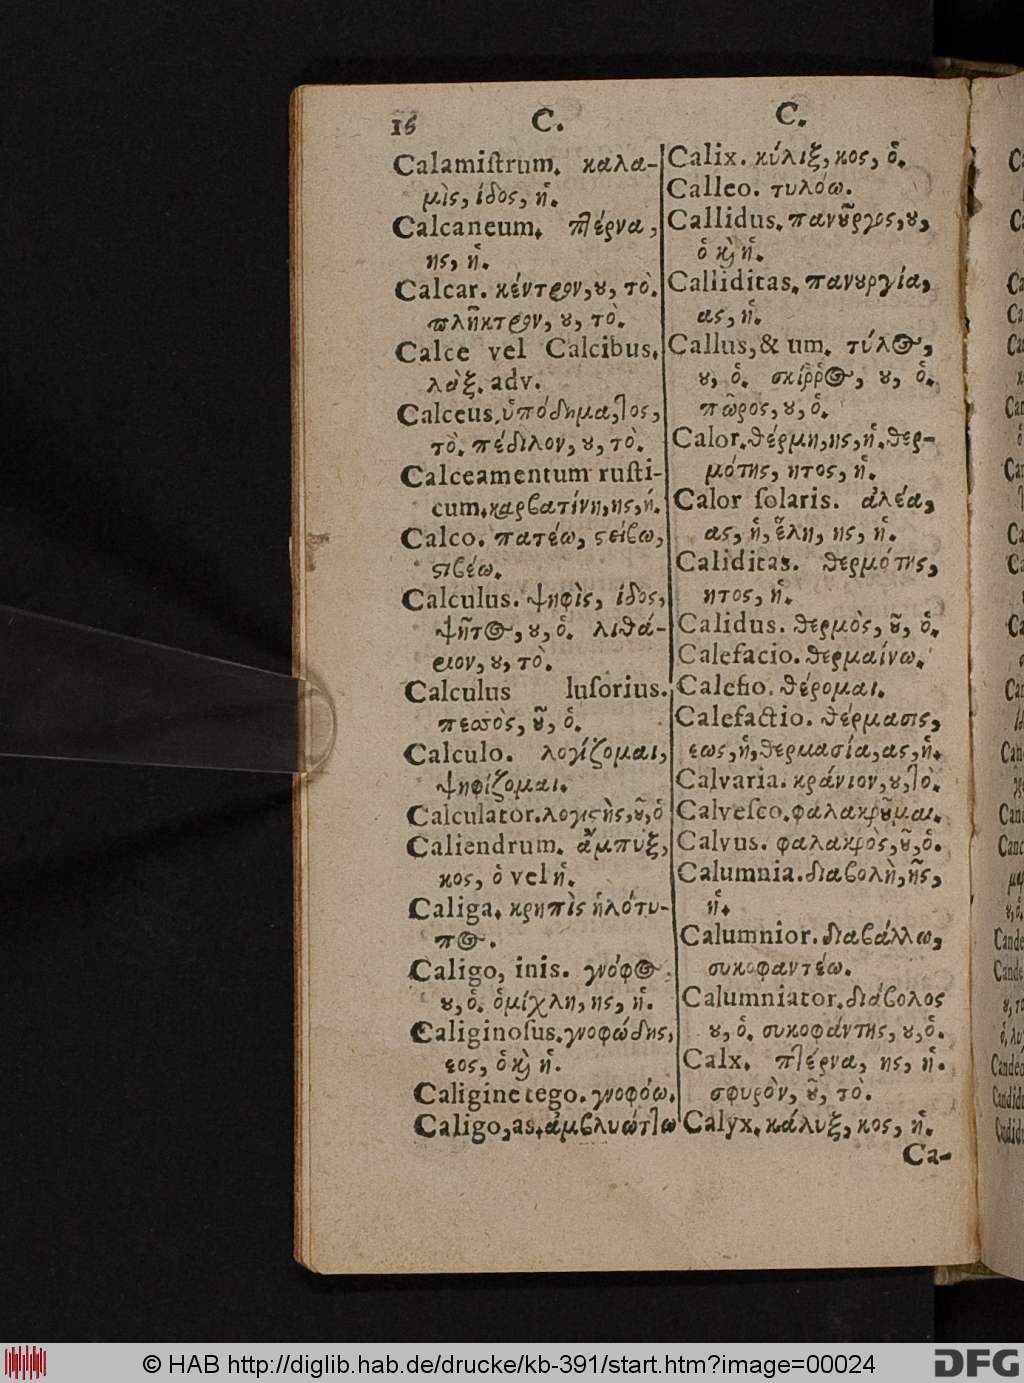 16 C. C.
Calamiſtrum. καλα-
μὶς, ίδος, ἡ.
Calcaneum. πτέρνα,
ης, ἡ.
Calcar. κέντρον, ου, τὸ.
πλῆκτρον, ου, τὸ.
Calce vel Calcibus.
λὰξ. adv.
Calceus. ὑπόδημα, τος,
τὸ. πέδιλον, ου, τὸ.
Calceamentum ruſti-
cum. καρβατίνη, ης, ἡ.
Calco. πατέω, στείβω,
στιβέω.
Calculus. ψηφὶς, ίδος,
ψῆτος, ου, ὁ. λιθά-
ριον, ου, τὸ.
Calculus luſorius.
πεσσὸς, οῦ, ὁ.
Calculo. λογίζομαι,
ψηφίζομαι.
Calculator. λογιστὴς, οῦ, ὁ
Caliendrum. ἄμπυξ,
κος, ὁ vel ἡ.
Caliga. κρηπὶς ἡλότυ-
πος.
Caligo, inis. γνόφος
ου, ὁ. ὁμίχλη, ης, ἡ.
Caliginoſus. γνοφώδης,
εος, ὁ καὶ ἡ.
Caligine tego. γνοφόω.
Caligo, as. ἀμβλυώττω
Calix. κύλιξ, κος, ὁ.
Calleo. τυλόω.
Callidus. πανοῦργος, ου,
ὁ καὶ ἡ.
Calliditas. πανουργία,
ας, ἡ.
Callus, & um. τύλος,
ου, ὁ. σκίῤῥος, ου, ὁ.
πῶρος, ου, ὁ.
Calor. θέρμη, ης, ἡ. θερ-
μότης, ητος, ἡ.
Calor ſolaris. ἀλέα,
ας, ἡ, ἕλη, ης, ἡ.
Caliditas. θερμότης,
ητος, ἡ.
Calidus. θερμὸς, οῦ, ὁ.
Calefacio. θερμαίνω.
Calefio. θέρομαι.
Calefactio. θέρμασις,
εως, ἡ, θερμασία, ας, ἡ.
Calvaria. κράνιον, ου, τὸ.
Calveſco. φαλακροῦμαι.
Calvus. φαλακρὸς, οῦ, ὁ.
Calumnia. διαβολὴ, ῆς,
ἡ.
Calumnior. διαβάλλω,
συκοφαντέω.
Calumniator. διάβολος
ου, ὁ. συκοφάντης, ου, ὁ.
Calx. πτέρνα, ης, ἡ.
σφυρὸν, οῦ, τὸ.
Calyx. κάλυξ, κος, ἡ.
Ca-
© HAB http://diglib.hab.de/drucke/kb-391/start.htm?image=00024
DFG